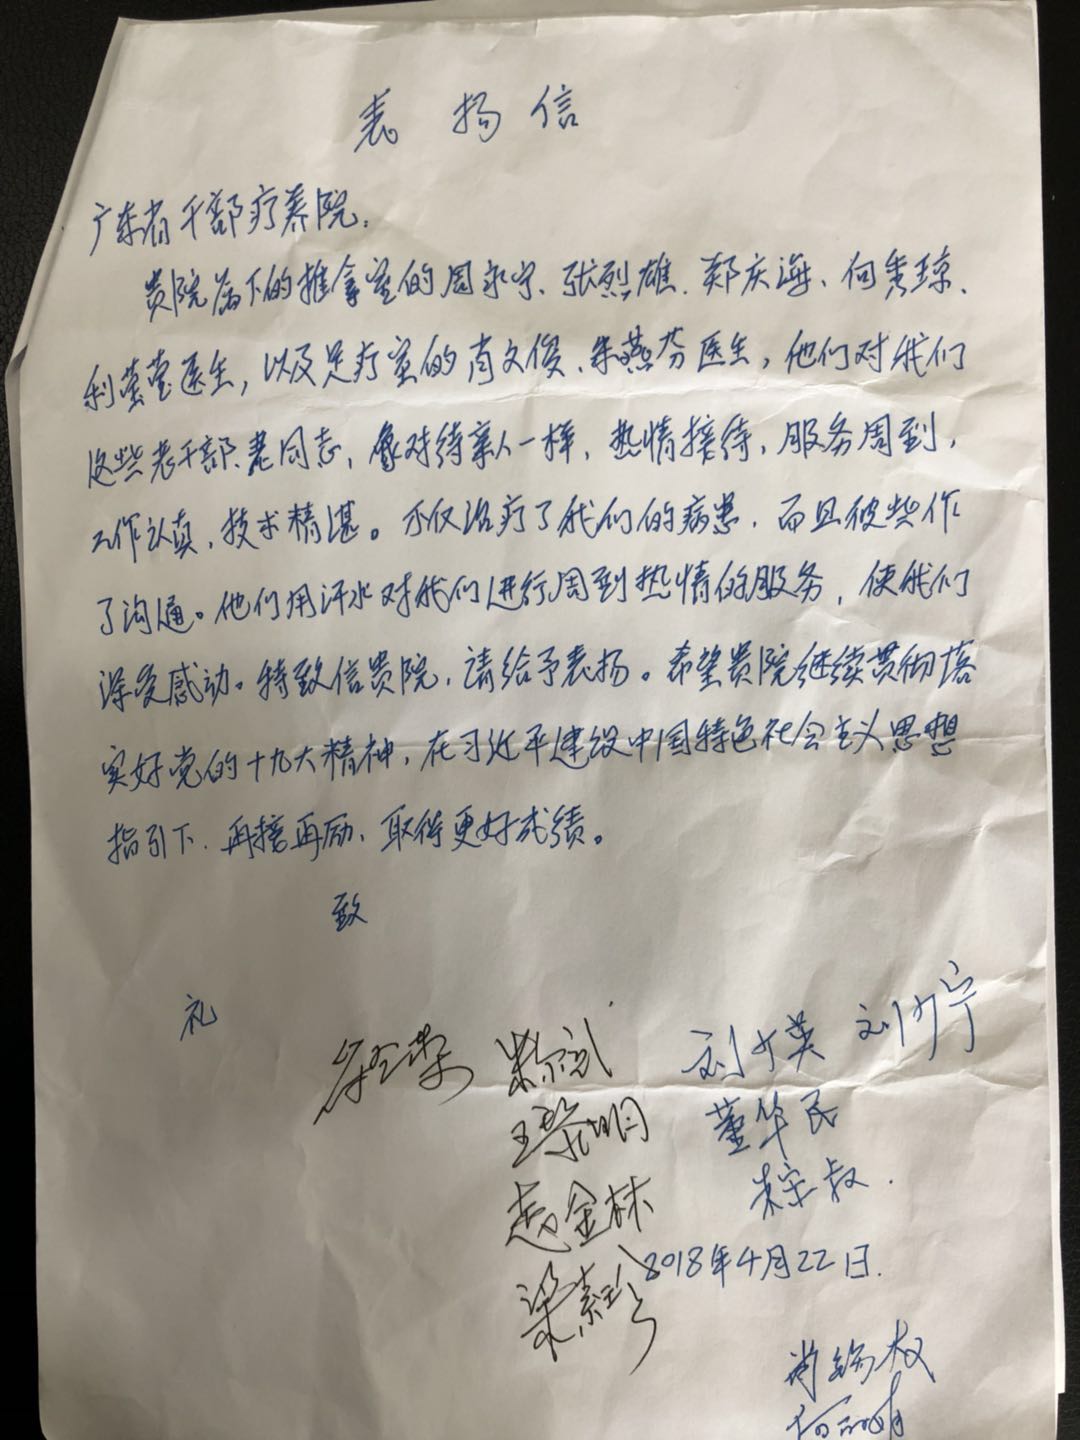 表扬信
广东省干部疗养院：
贵院属下的推拿室的周永宁、张烈雄、郑庆海、何秀琼、
利莹莹医生，以及足疗室的肖文俊、朱燕芬医生，他们对我们
这些老干部、老同志，像对待亲人一样，热情接待，服务周到，
工作认真，技术精湛。不仅治疗了我们的病患，而且彼些作
了沟通。他们用汗水对我们进行周到热情的服务，使我们
深受感动。特致信贵院，请给予表扬。希望贵院继续贯彻落
实好党的十九大精神，在习近平建设中国特色社会主义思想
指引下，再接再励、取得更好成绩。
致
礼
刘少英 刘少宁
王荣明 董华民
赵金林
2018年4月22日.
梁素珍